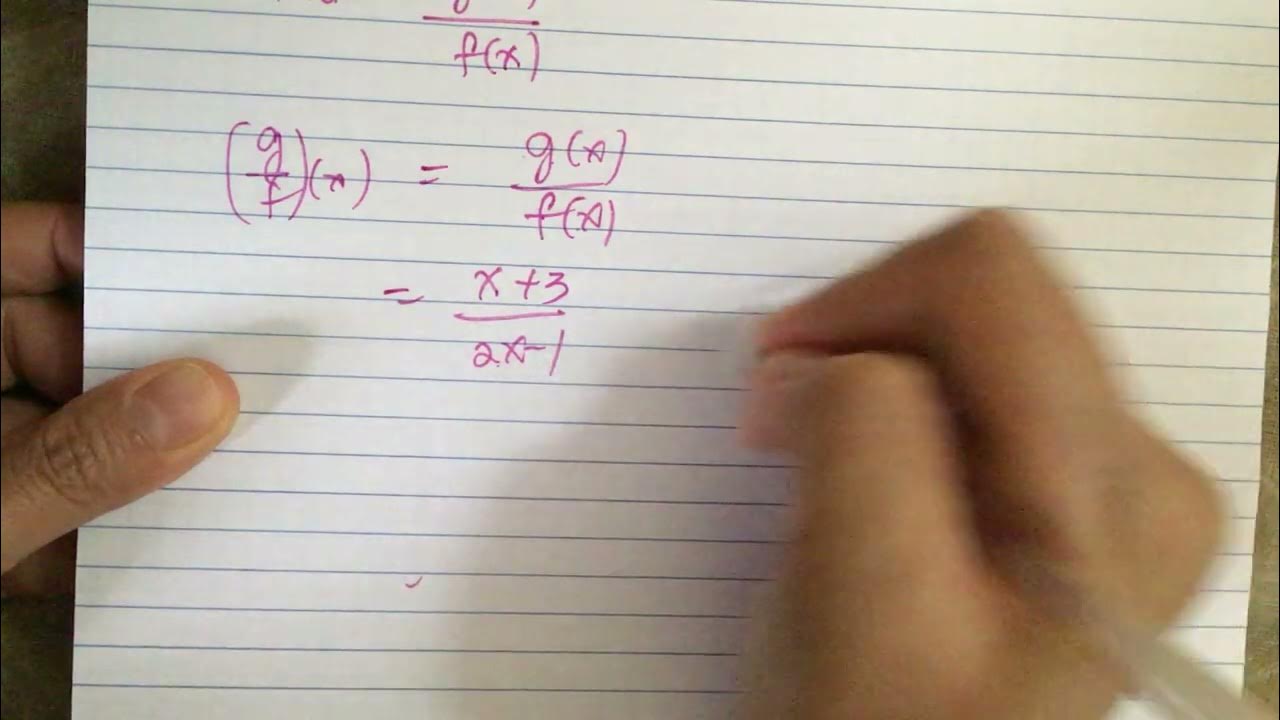 f(x)
(g/f)(x) = g(x)/f(x)
= x+3/2x-1